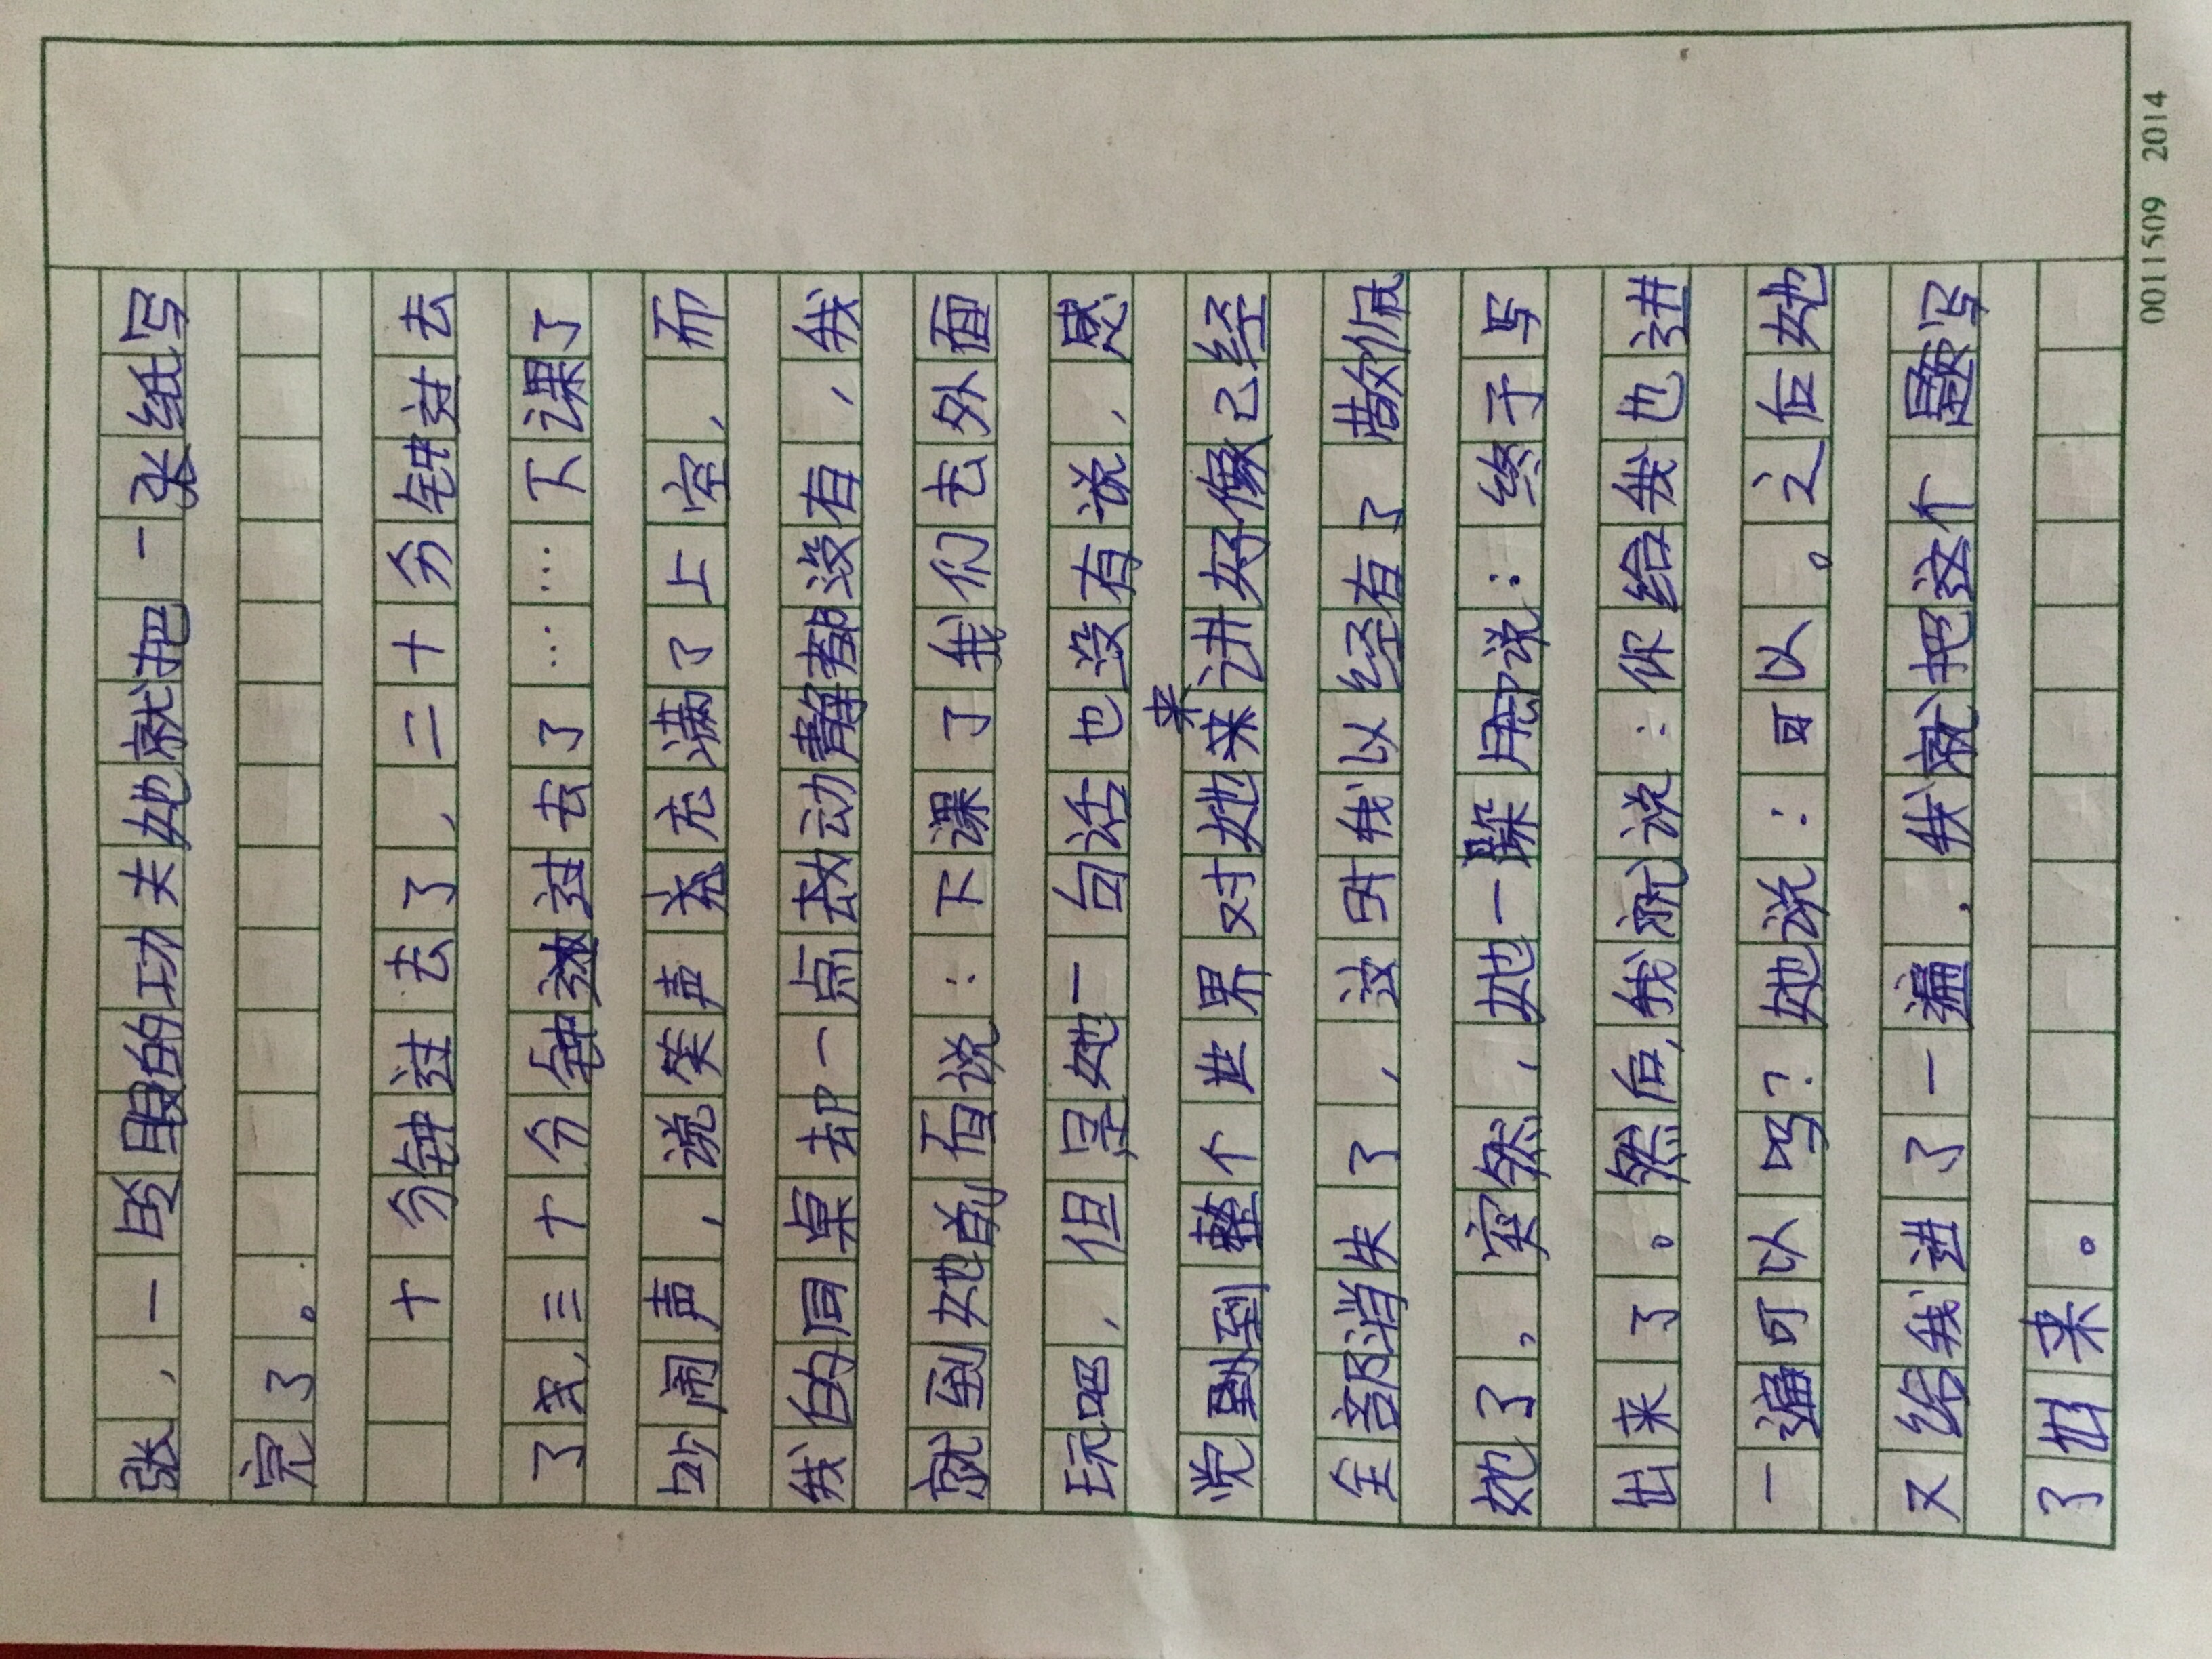 张，一眨眼的功夫她就把一张纸写
完了。
十分钟过去了，二十分钟过去
了，三十分钟过去了……下课了
吵闹声，说笑声充满了上空，而
我的同桌却一点动静都没有，我
就到她前面说：下课了我们去外面
玩吧，但是她一句话也没有说，感
觉到整个世界对她来讲好像已经
全部消失了，这时我以经有了敬佩
她了。突然，她一跺脚说：终于写
出来了。然后，我就说：你给我也讲
一遍可以吗？她说：可以。之后她
又给我讲了一遍，我就把这个题写
了出来。
0011509 2014